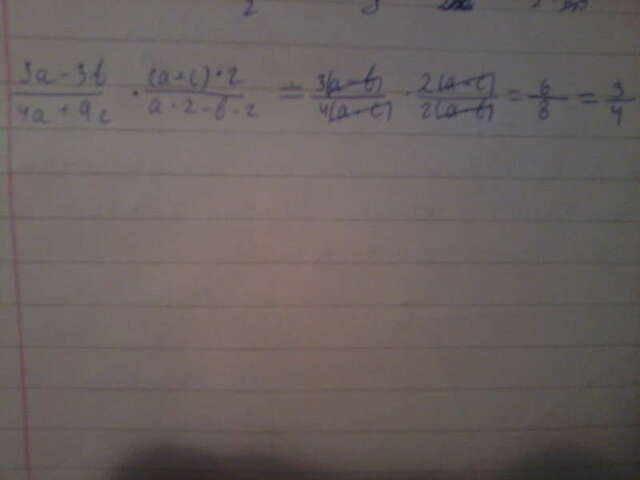 3a-3b/4a+4c · (a+c)·2/a·2-b·2 = 3(a-b)/4(a-c) · 2(a-c)/2(a-b) = 6/8 = 3/4